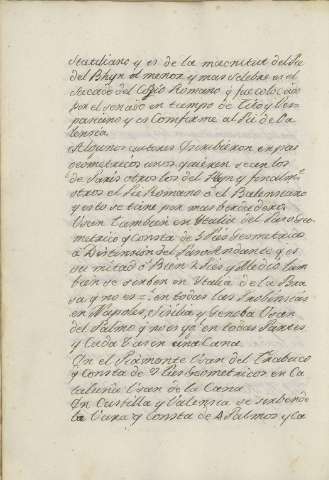 Statiliano y es de la magnitut del Pie
del Rhyn el menor y mas selebre es el
secado del Romano q fue colocado
por el senado en tiempo de Tito y Ves
pasiano y es comforme al Pie de Va
lensia
Algunos autores escribieron en pias
Geometricos unos quieren sean los
de Paris otros los del Rhyn y finalm.te
otros el Pie Romano o el Valensiano
y esto se tiene por mas berdadero.
Usen tambien en Ytalia del Paso Geo
metrico q consta de 5 Pies Geometricos
a Distension del Paso Andante q es
su mitad o Bien 2 Pies y Medio tam
bien se serben en Ytalia de la Bra
sa q no es = en todas las Probinsias
en Napoles, Sisilia y Genoba Usan
del Palmo q no es ya en todas Partes
y Cada en una Cana
En el Piamonte Usan del Trabuco
q consta de Pies Geometricos en Ca
taluña Usan de la Cana
En Castilla y Valensia se serben de
la Vara q consta de 4 Palmos y la